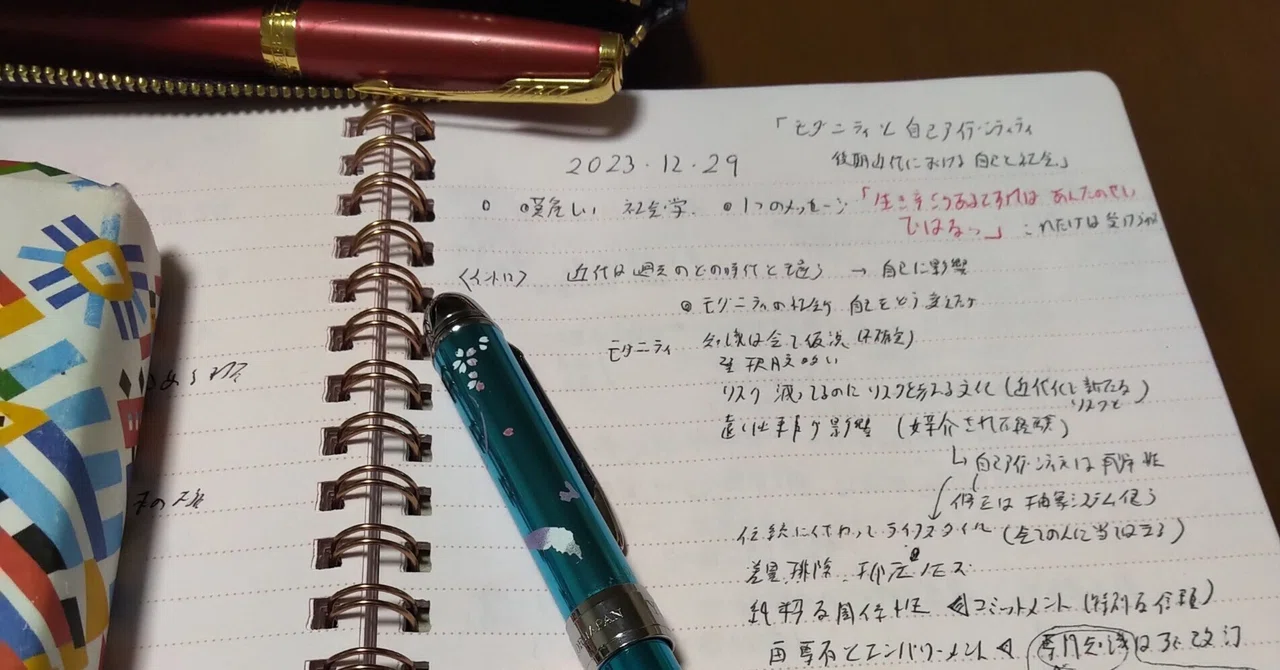 「モダニティと自己アイデンティティ
後期近代における自己と社会」
2023.12.29
難しい 社会学. ◎1つのメッセージ「生き辛さあるとすれば あんたのせい
ではなっ」 これだけは受け
〈イントロ〉 近代は過去のどの時代とも違う → 自己に影響
◎モダニティの社会が 自己をどう変えたか
モダニティ 知識は全て仮説 (不確定)
選択肢多い
リスク 減ってるのに リスクを考える文化 (近代化と新たなる
リスクと
遠い出来事が影響 (媒介された経験)
↳ 自己アイデンティティは再帰性
修正は 抽象システム使う
伝統に代わってライフスタイル (全ての人に当てはまる)
差異 排除
純粋な関係性 コミットメント (特別な信頼)
再専有とエンパワーメント 専門知識は 改訂
ある
JAPAN